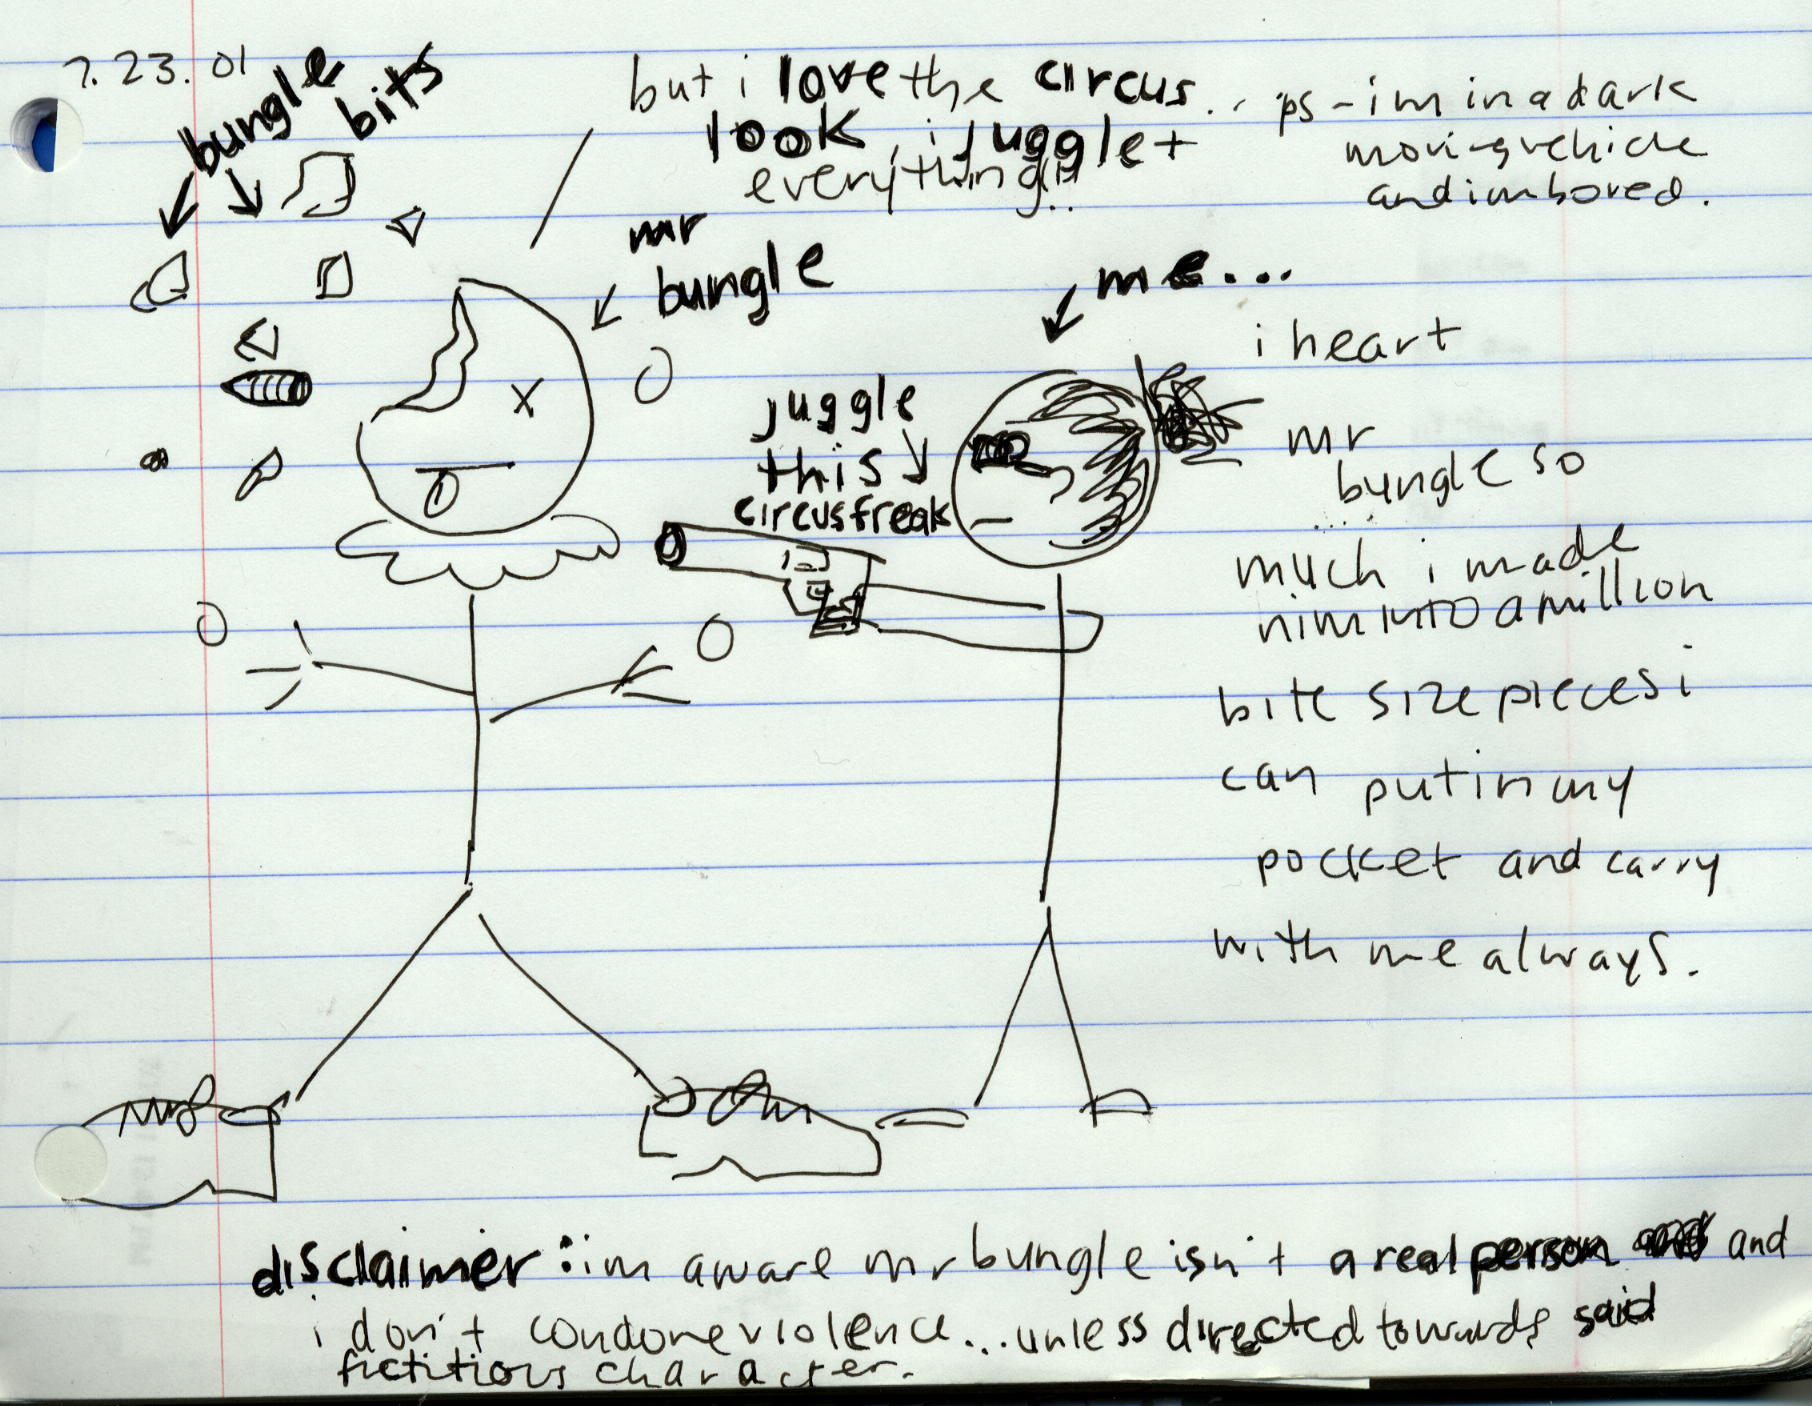 7.23.01
bungle
bits
but i love the circus..
look, i juggle +
everything!!..
ps - im in a dark
moving vehicle
and im bored.
mr
bungle
me...
juggle
this
circus freak
i heart
mr
bungle so
much i made
him into a million
bite size pieces i
can put in my
pocket and carry
with me always.
disclaimer: im aware mr bungle isn't a real person and
i don't condone violence...unless directed towards said
fictitious character.